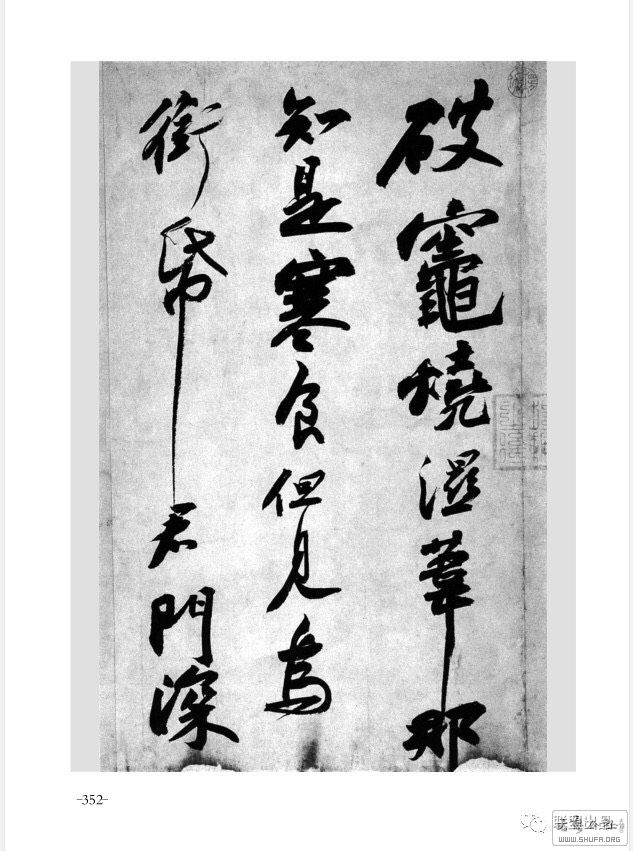 破竈燒濕葦那
知是寒食但見烏
銜帋君門深
-352-
WWW.SHUFA.ORG